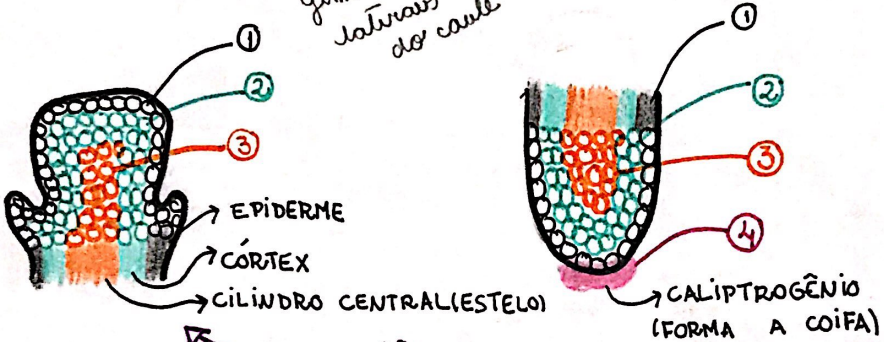 laturais
do caule
①
②
③
EPIDERME
CÓRTEX
CILINDRO CENTRAL(ESTELO)
①
②
③
④
CALIPTROGÊNIO
(FORMA A COIFA)